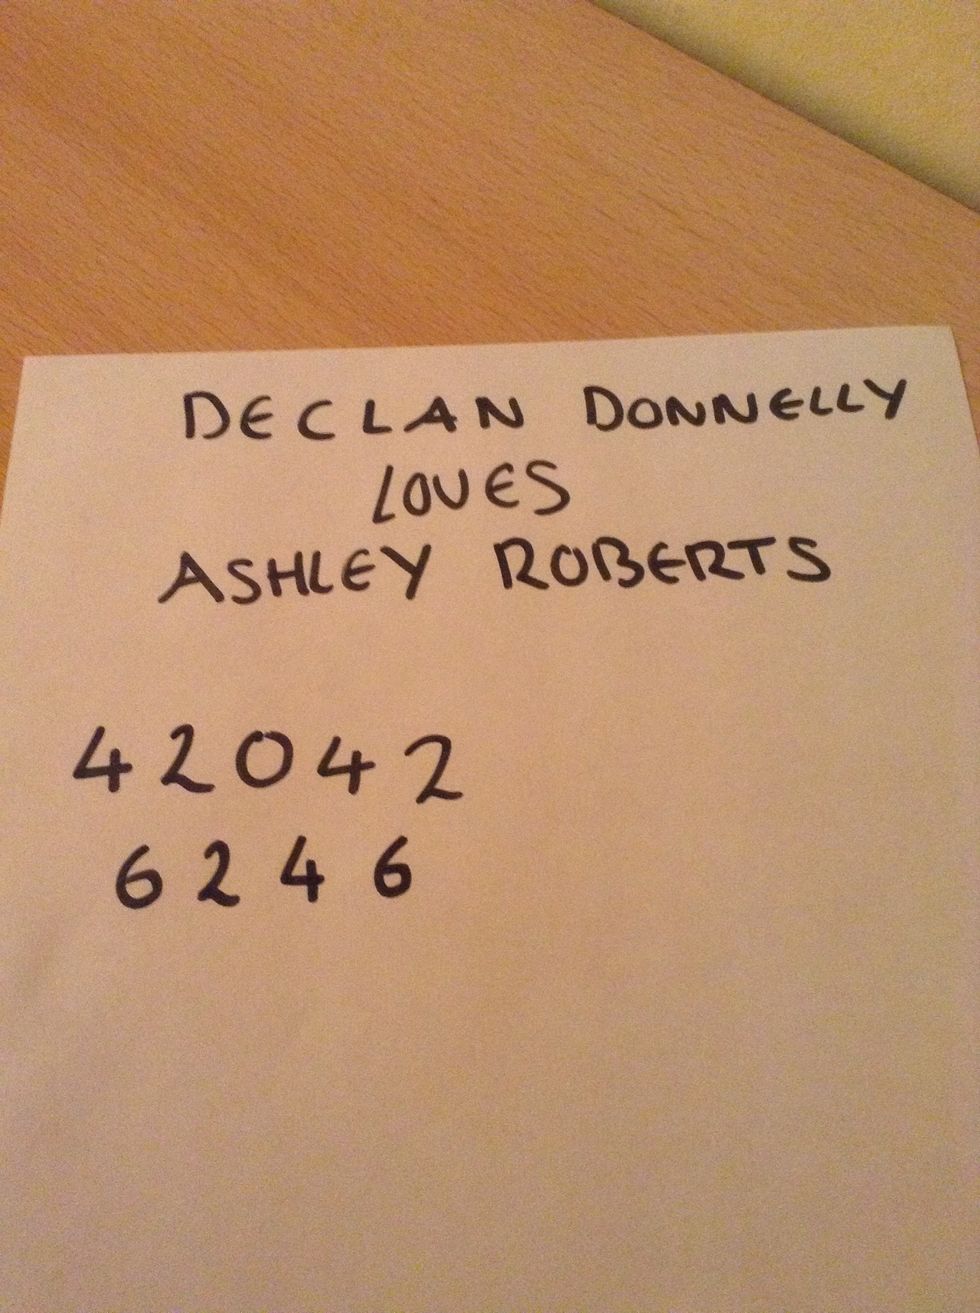 DECLAN DONNELLY
LOVES
ASHLEY ROBERTS
42042
6246